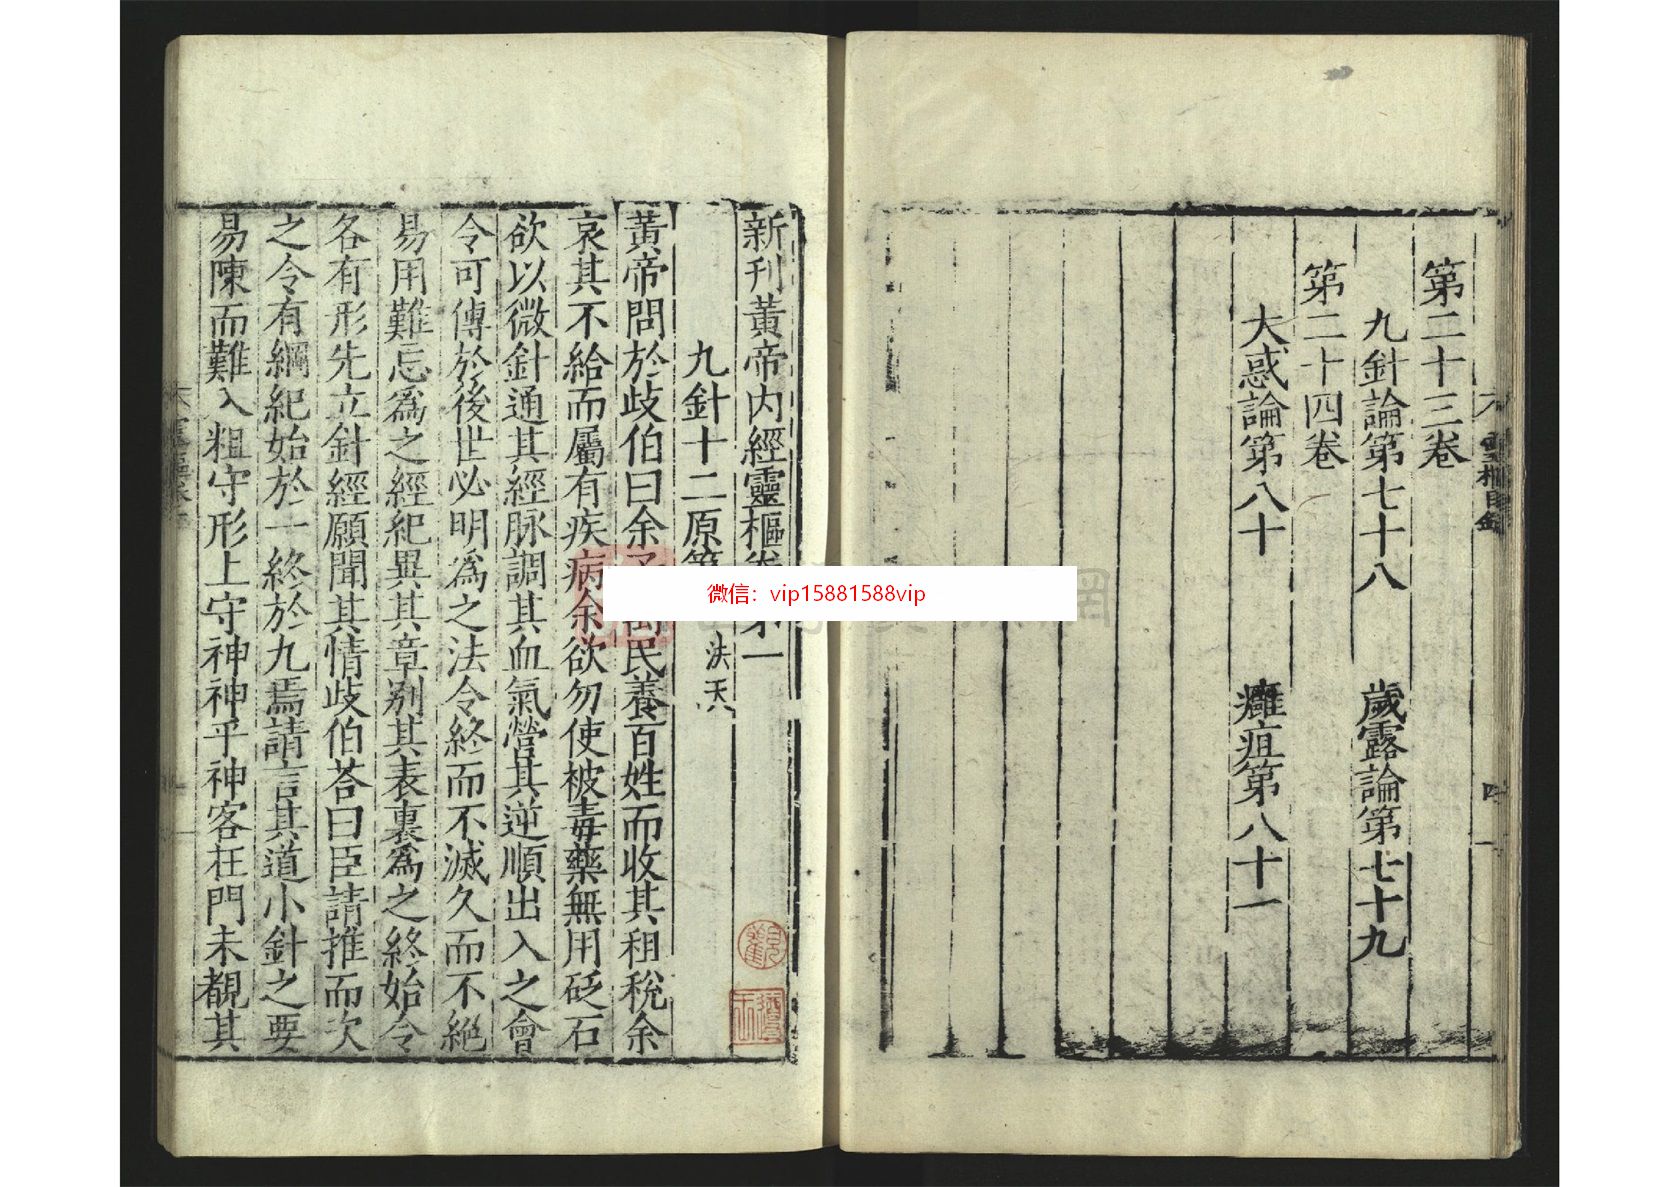 第二十三卷
九針論第七十八 歲露論第七十九
第二十四卷
大惑論第八十 癰疽第八十一
新刊黃帝內經靈樞卷第一
九針十二原第 法天
黃帝問於歧伯曰余子萬民養百姓而收其租稅余
哀其不給而屬有疾病余欲勿使被毒藥無用砭石
欲以微針通其經脉調其血氣營其逆順出入之會
令可傳於後世必明爲之法令終而不滅久而不絕
易用難忘爲之經紀異其章別其表裏爲之終始令
各有形先立針經願聞其情歧伯荅曰臣請推而次
之令有綱紀始於一終於九焉請言其道小針之要
易陳而難入粗守形上守神神乎神客在門未覩其
微信：vip15881588vip